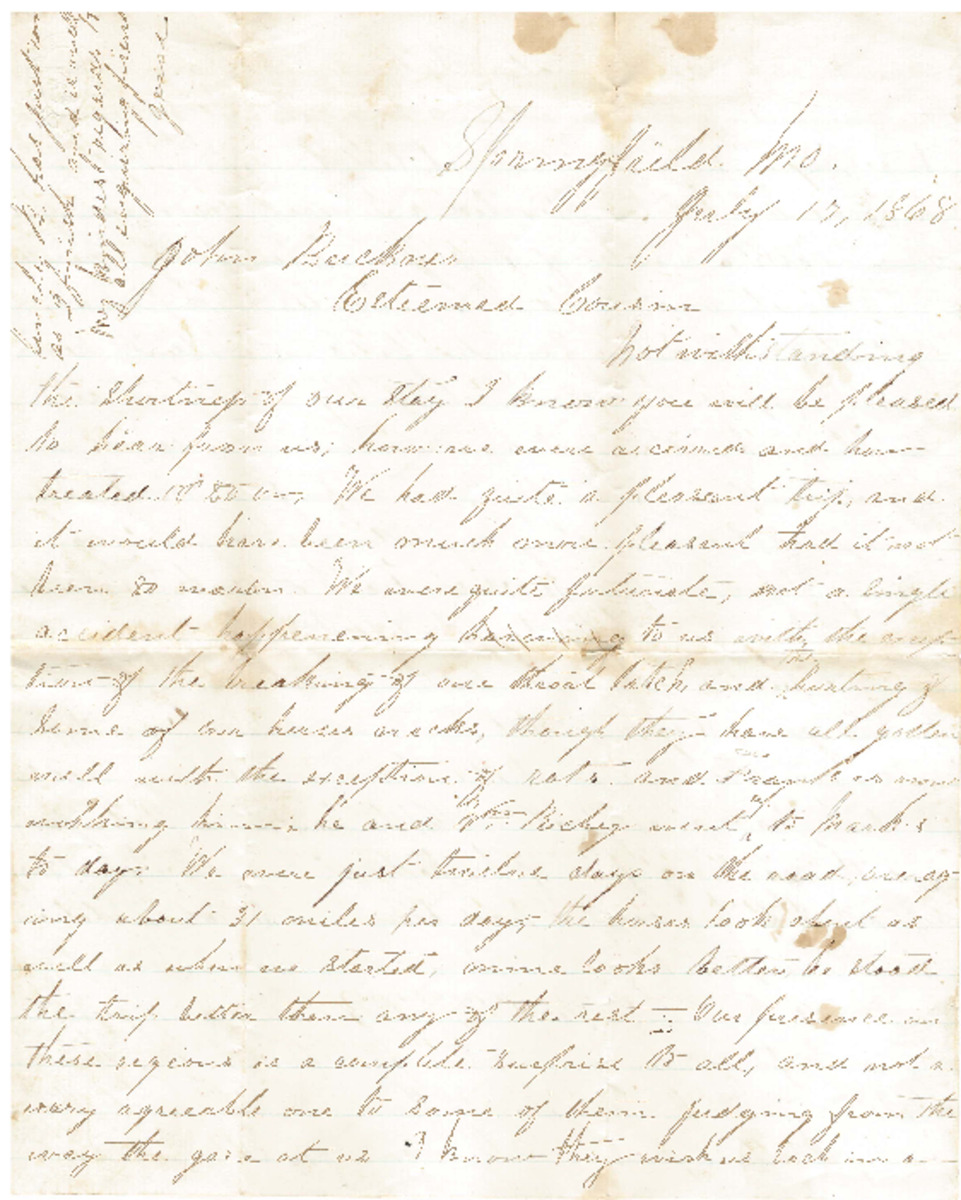 Springfield Mo.
July 17, 1868
John Backues
Esteemed Cousin
Notwithstanding
the shortness of our stay I know you will be pleased
to hear from us; how we were received and how
treated &c We had quite a pleasant trip, and
it would have been much more pleasant had it not
been so warm. We were quite fortunate, not a single
accident happening to us with the excep-
tion of the breaking of one throat latch, and the hurting of
some of our horses necks, though they have all gotten
well with the exception of and Frank is now
working him he and Wm Richey went to
to day. We were just twelve days on the road, averag-
ing about 31 miles per day, the horses look about as
well as when we started, mine looks better he stood
the trip better then any of the rest — Our presence in
these regions is a complete surprise to all, and not a
very agreeable one to some of them judging from the
way the gaze at us I know they wish us back in a
kindly to has just
as I finish and is
my kindest regards to
all enquiring friends